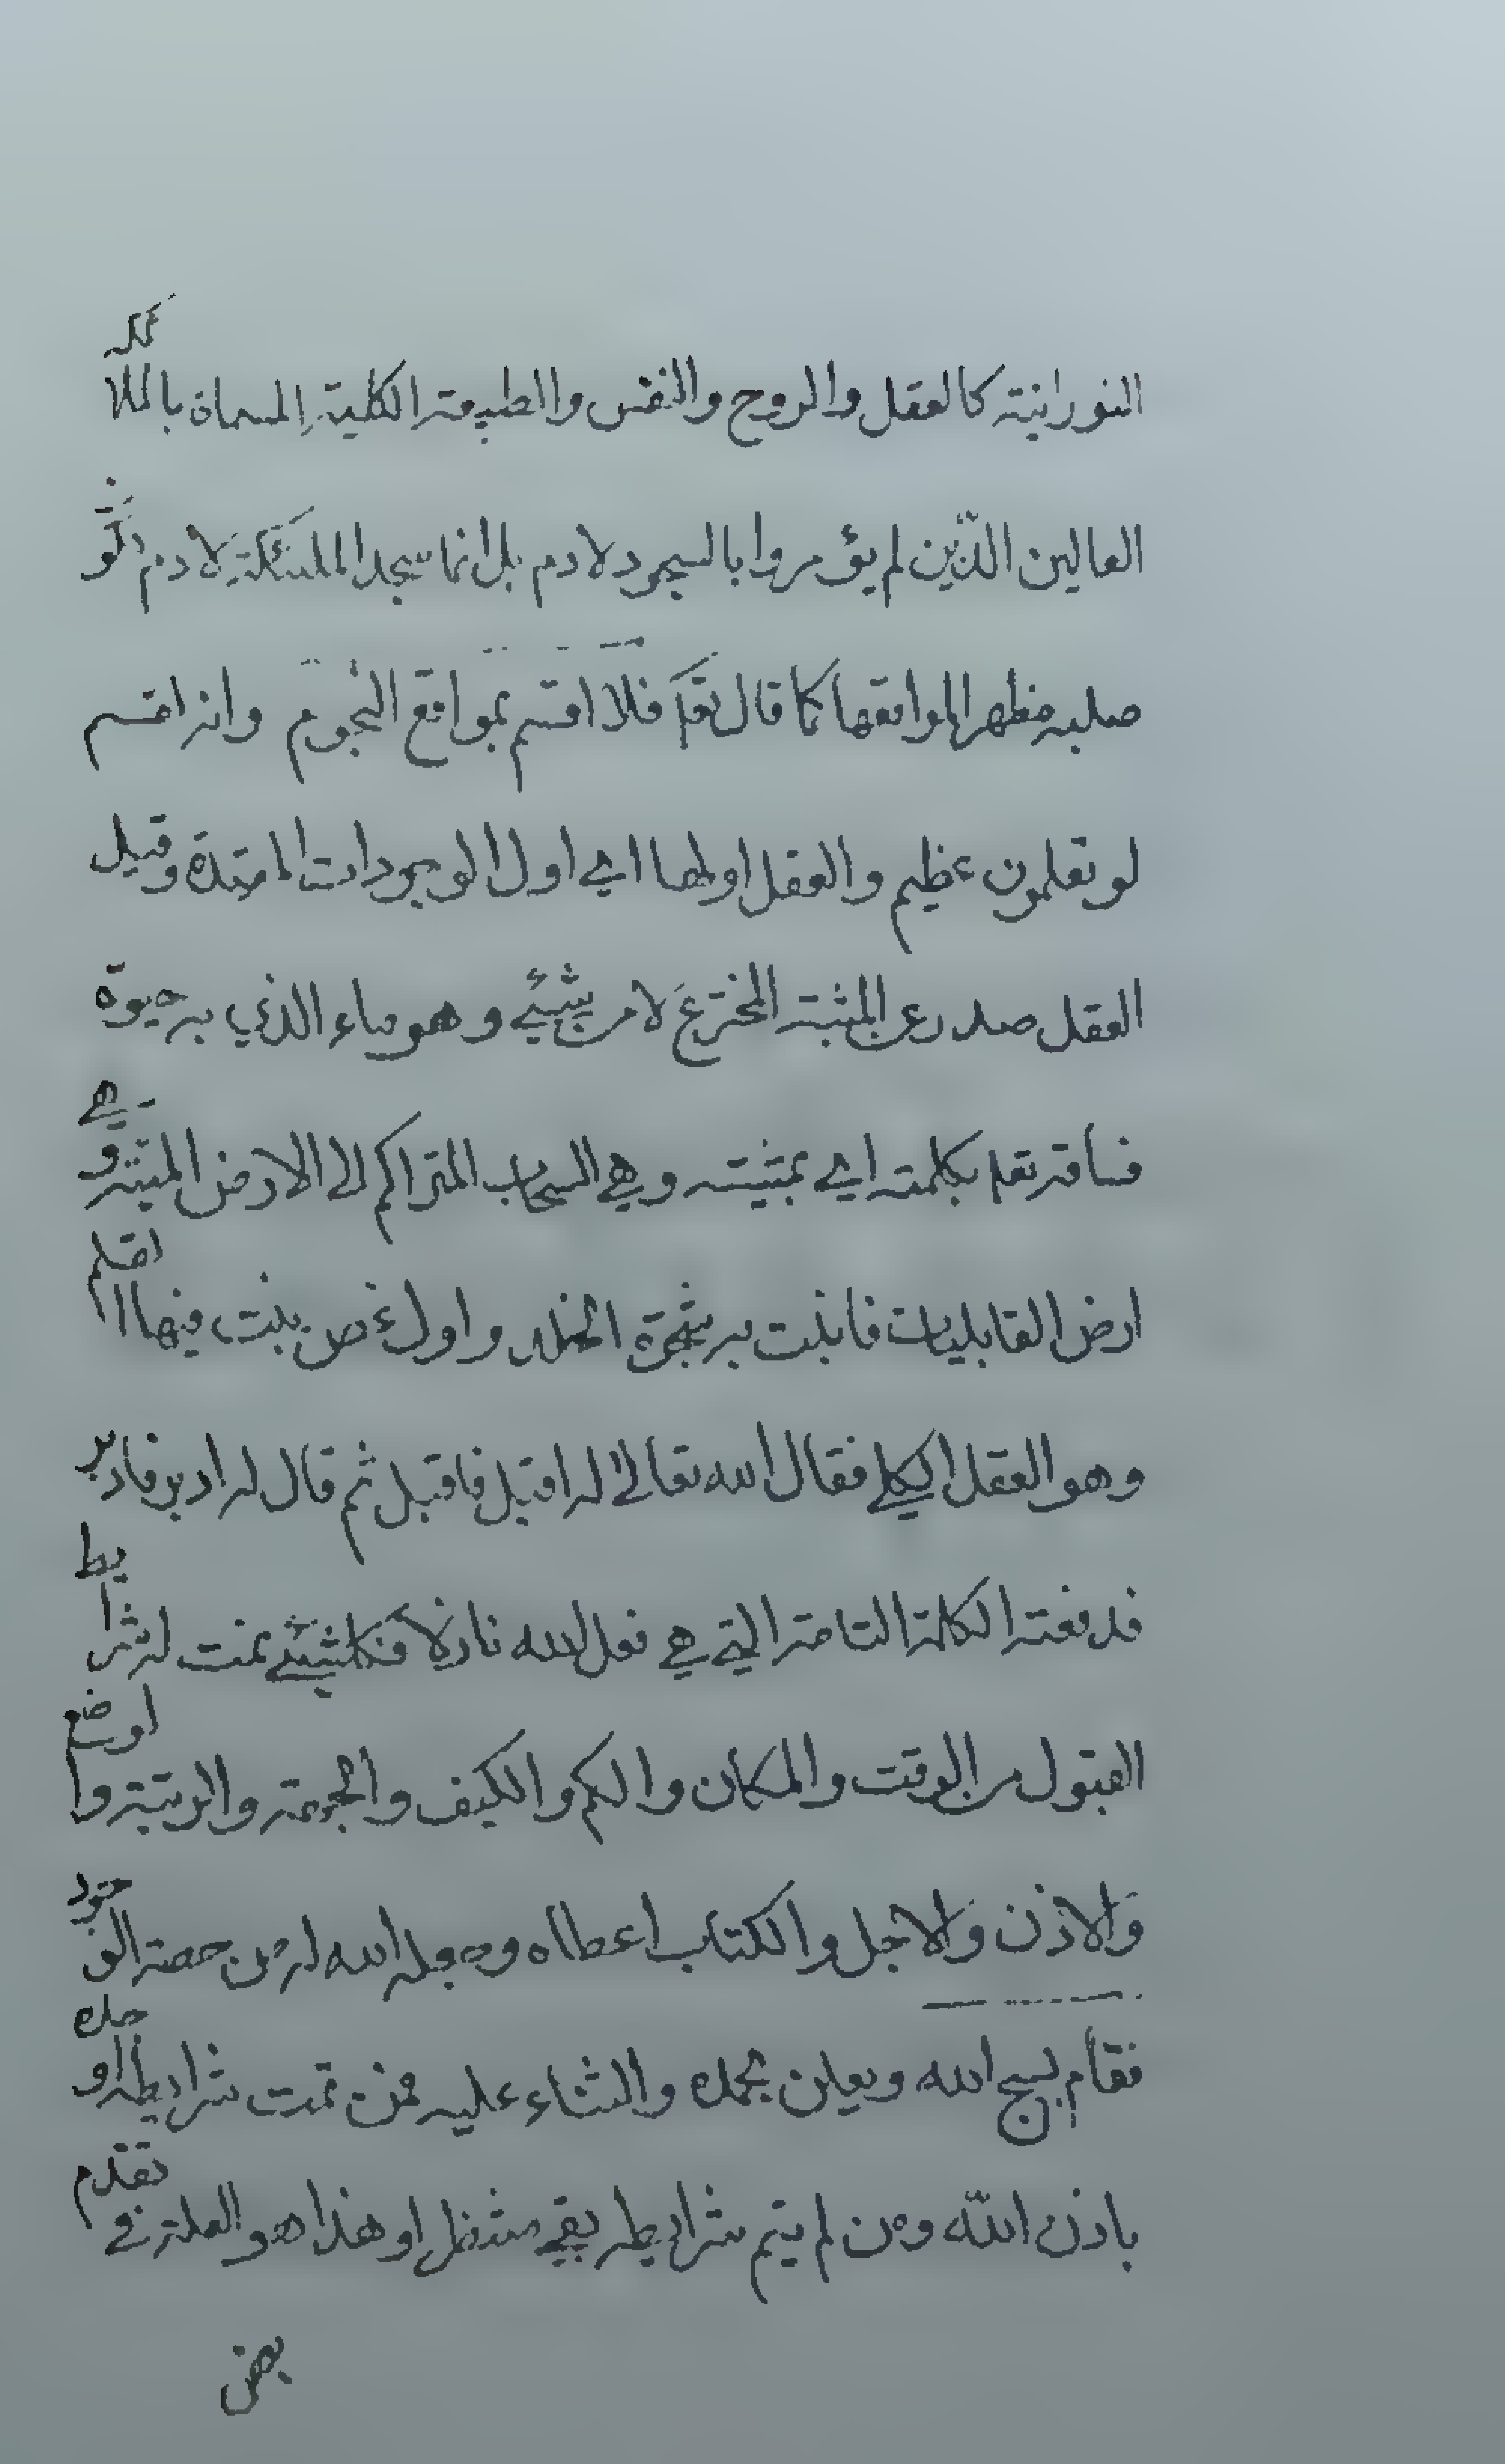 النورانية كالعقل والروح والنفس والطبيعة الكلية المسماة بالملائكة
العالين الذّين لم يؤمروا بالسجود لادم بل انما سجد الملئكة لادم لكون
صلبه مظهرا لمواقعها كما قال تعا فلا اقسم بمواقع النجوم وانه لقسم
لو تعلمون عظيم والعقل اولها اي اول الوجودات المقيدة وقيل
العقل صدر عن المشية المخترع لا من شيئ وهو ماء الذي به حيوة
فساقه تعا بكلمته اي بمشيته وهي السحاب المتراكم الى الارض الميتة وهي
ارض القابليات فانبتت به شجرة الخلد واول غصن نبت فيها القلم
وهو العقل الكلي فقال الله تعالى له اقبل فاقبل ثم قال له ادبر فادبر
فدفعته الكلمة التامة التي هي فعل الله نازلا فكلشيئ تمت له شرايط
القبول من الوقت والمكان والكم والكيف والجهة والرتبة والوضع
والاذن والاجل والكتاب اعطاه وجعله الله له من حصة الوجود
فقام يسبح الله ويعلن بحمده والثناء عليه فمن تمت شرايطه اوجده
باذن الله ومن لم يتم شرايطه بقي منتظرا وهذا هو العلة في تقدم
بعض